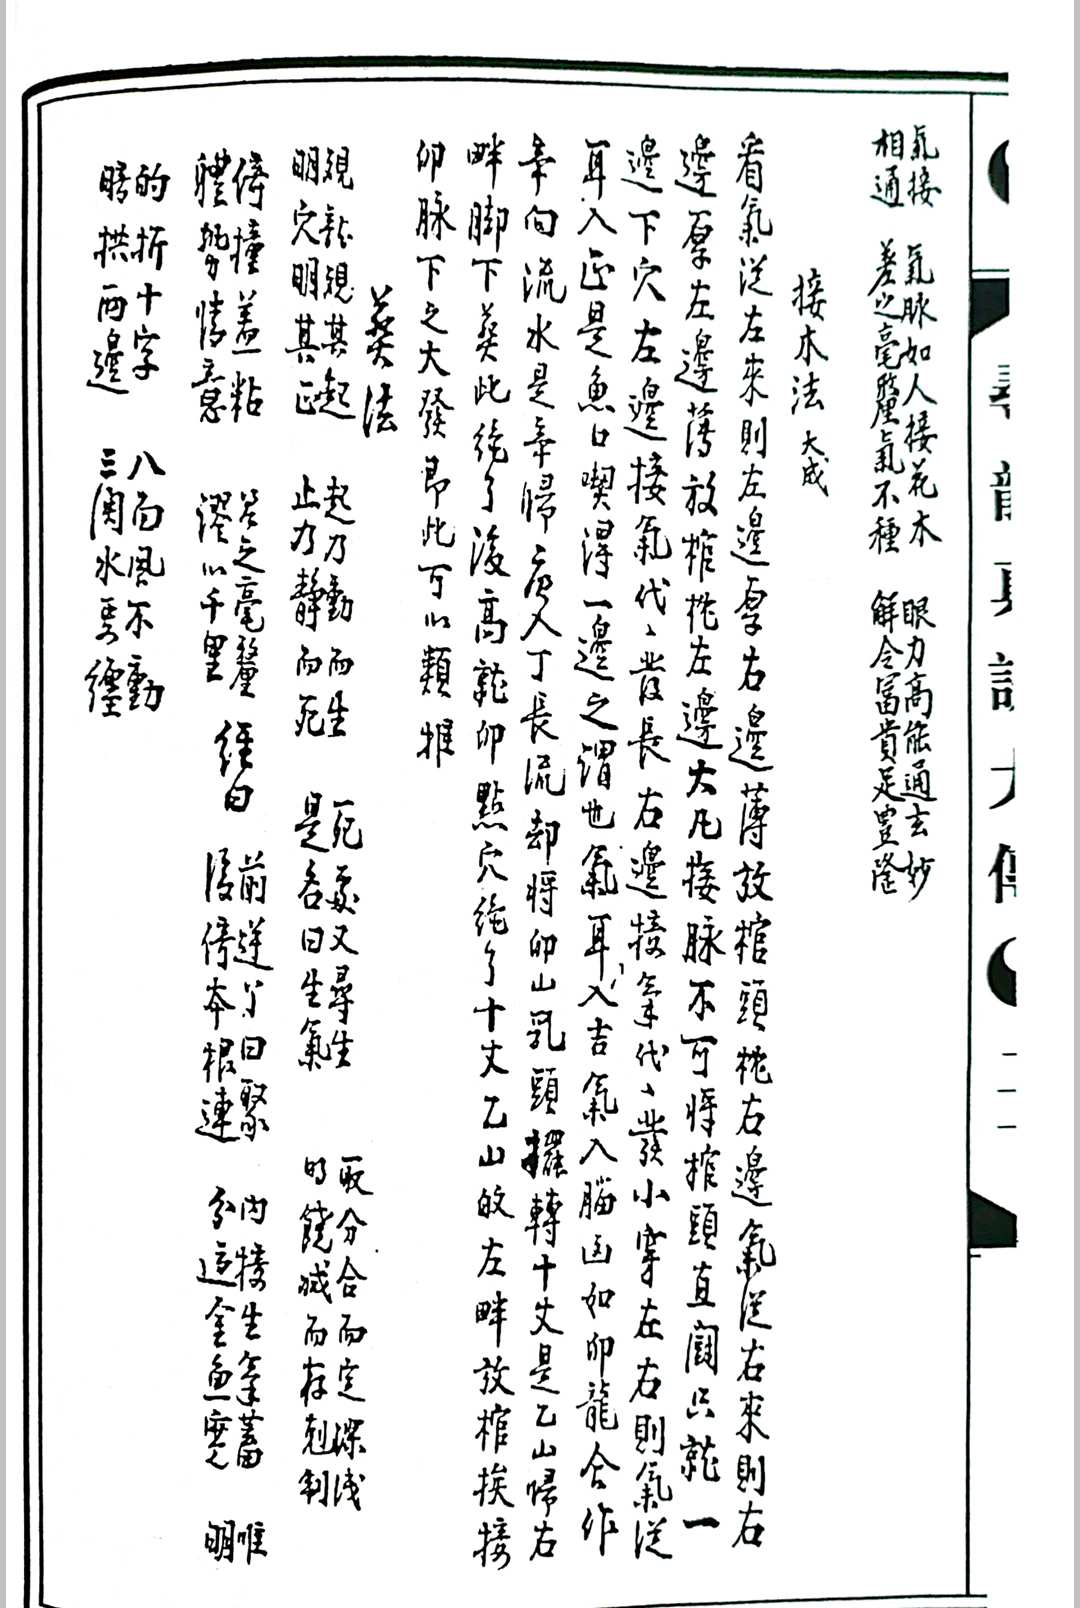 尋龍真訣大傳
一一一
氣接 氣脉如人接花木 眼力高能通玄妙
相通 差之毫釐氣不種 解令富貴足豐隆
接木法 大成
看氣從左來則左邊厚右邊薄放棺頭枕右邊氣從右來則右
邊厚左邊薄放棺枕左邊大凡接脉不可將棺頭直闘只就一
邊下穴左邊接氣代代發長右邊接氣代代發小穿左右則氣從
耳入正是魚口喫得一邊之謂也氣耳入吉氣入腦凶如卯龍合作
辛向流水是辛歸庚入丁長流却將卯山乳頭擺轉十丈是乙山歸右
畔脚下葬此絶了後高就卯點穴絶了十丈乙山的左畔放棺挨接
卯脉下之大發即此可以類推
葬法
覌龍覌其起 起乃動而生 死處又尋生 取分合而定深淺
明穴明其正 止乃静而死 是名曰生氣 明饒减而存剋制
倚撞盖粘 差之毫釐 經曰 前迎曰聚 内接生氣蓄 唯
體勢情意 謬以千里 後倚本根連 分這金魚 明
的折十字 八面風不動
暗拱兩邊 三關水要纏